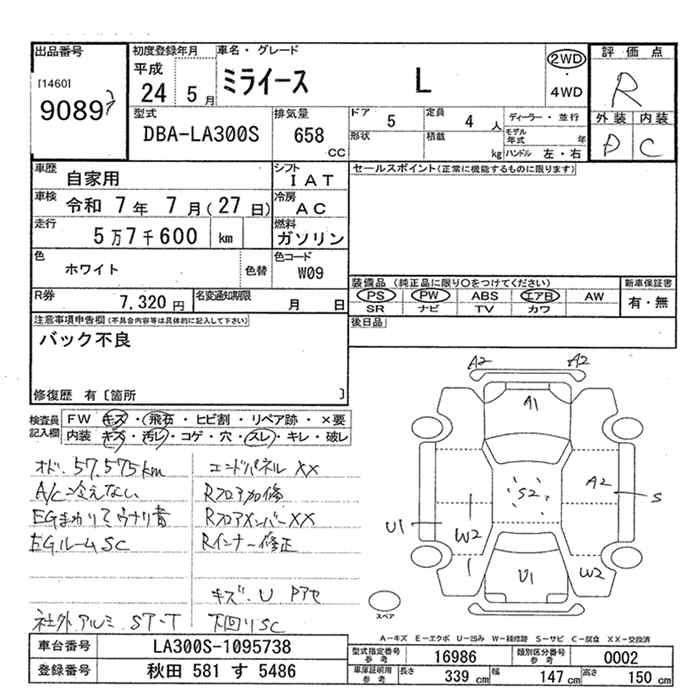 出品番号
[1460]
9089
初度登録年月
平成
24 5月
車名・グレード
ミライース L
2WD
・
4WD
評価点
R
外装 内装
D C
型式
DBA-LA300S
排気量
658
CC
ドア
5
定員
4人
形状
積載
kg
ディーラー・並行
モデル年式 年
ハンドル 左・右
車歴
自家用
シフト
IAT
車検
令和 7年 7月(27日)
冷房
AC
走行
5万7千600 km
燃料
ガソリン
色
ホワイト
色替
色コード
W09
R券
7,320円
名変通知期限
月 日
セールスポイント(正常に機能するものに限ります)
装備品 (純正品に限り○をつけてください)
PS PW ABS エアB AW
SR ナビ TV カワ
新車保証書
有・無
後日品
注意事項申告欄(不具合内容等は具体的に記入して下さい)
バック不良
修復歴 有〔箇所 〕
検査員記入欄
FW キズ・飛石・ヒビ割・リペア跡・×要
内装 キズ・汚レ・コゲ・穴・スレ・キレ・破レ
オド.57,575km
A/C冷えない
EGまわりでウナリ音
EGルームSC
社外アルミ.ST-T
エンドパネルXX
Rフロア加修
RフロアメンバーXX
Rインナー修正
キズ.U Pアセ
下回りSC
A2 A2
A1
A2
S
S2
U1
W2
U1
W2
スペア
A-キズ E-エクボ U-凹み W-補修跡 S-サビ C-腐食 XX-交換済
車台番号
LA300S-1095738
登録番号
秋田 581 す 5486
型式指定番号
参考
16986
類別区分番号
参考
0002
車庫証明用
参考
長さ 339 cm 幅 147 cm 高さ 150 cm